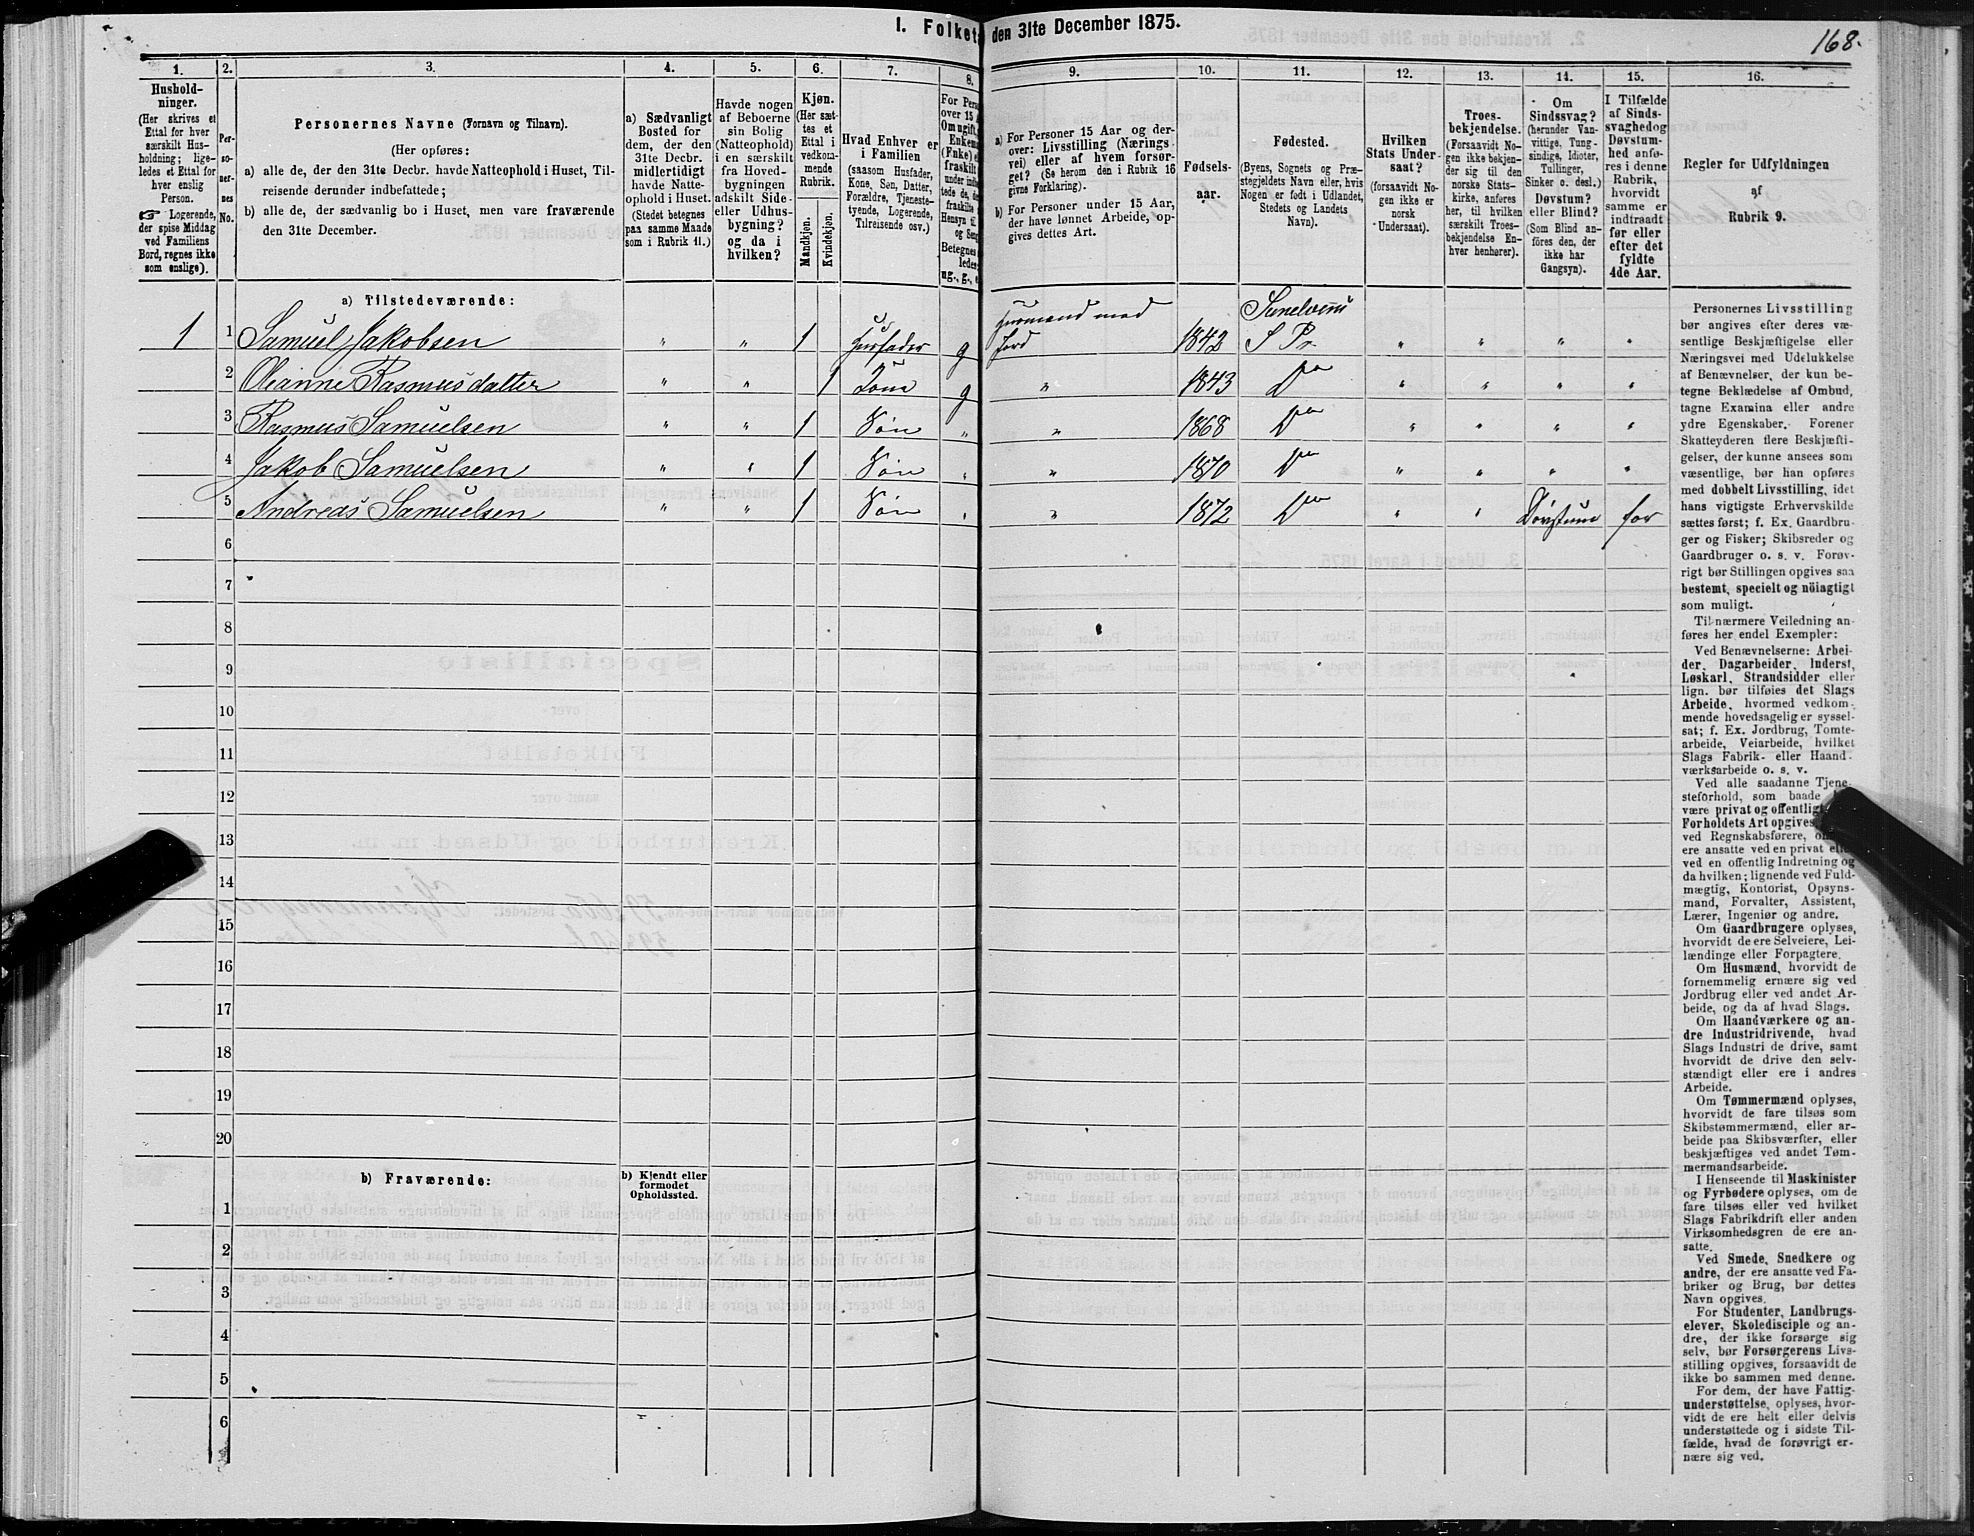 I. Folketæ den 31te December 1875.
168.
1.
Hushold-
ninger.
(Her skrives et
Ettal for hver
særskilt Hus-
holdning; lige-
ledes et Ettal for
hver enslig
Person.
Logerende,
der spise Middag
ved Familiens
Bord, regnes ikke
som enslige).
2.
Per-
so-
ner-
nes
No.
3.
Personernes Navne (Fornavn og Tilnavn).
(Her opføres:
a) alle de, der den 31te Decbr. havde Natteophold i Huset, Til-
reisende derunder indbefattede;
b) alle de, der sædvanlig bo i Huset, men vare fraværende
den 31te December.
4.
a) Sædvanligt
Bosted for
dem, der den
31te Decbr.
midlertidigt
havde Natte-
ophold i Huset.
(Stedet betegnes
paa samme Maade
som i Rubrik 11.)
5.
Havde nogen
af Beboerne
sin Bolig
(Natteophold)
i en særskilt
fra Hoved-
bygningen
adskilt Side-
eller Udhus-
bygning?
og da i
hvilken?
6.
Kjøn.
(Her sæt-
tes et
Ettal i
vedkom-
mende
Rubrik.
Mandkjøn.
Kvindekjøn.
7.
Hvad Enhver er
i Familien
(saasom Husfader,
Kone, Søn, Datter,
Forældre, Tjeneste-
tyende, Logerende,
Tilreisende osv.)
8.
For Pers
over 15 A
Om ugift,
Enkem
(Enke) e
fraskilt
under indb
tede de,
fraskilte
Hensyn ti
og Seng
Betegnes
ledes:
ug., g., e
9.
a) For Personer 15 Aar og der-
over: Livsstilling (Nærings-
vei) eller af hvem forsør-
get? (Se herom den i Rubrik 16
givne Forklaring).
b) For Personer under 15 Aar,
der have lønnet Arbeide, op-
gives dettes Art.
10.
Fødsels-
aar.
11.
Fødested.
(Byens, Sognets og Præ-
stegjeldets Navn eller, hvis
Nogen er født i Udlandet,
Stedets og Landets
Navn).
12.
Hvilken
Stats Under-
saat?
(forsaavidt No-
gen ikke er
norsk
Undersaat).
13.
Troes-
bekjendelse.
(Forsaavidt No-
gen ikke bekjen-
der sig til den
norske Stats-
kirke, anføres
her, til hvilken
særskilt Troes-
bekjendelse En-
hver henhører).
14.
Om
Sindssvag?
(herunder Van-
vittige, Tung-
sindige, Idioter,
Tullinger,
Sinker o. desl.)
Døvstum?
eller Blind?
(Som Blind an-
føres den, der
ikke har
Gangsyn).
15.
I Tilfælde
af Sinds-
svaghedog
Døvstum-
hed anfø-
res i denne
Rubrik,
hvorvidt
samme er
indtraadt
før eller
efter det
fyldte
4de Aar.
16.
Regler for Udfyldningen
af
Rubrik 9.
a) Tilstedeværende:
1 1 Samuel Jakobsen " " 1 Husfader g Husmand med Jord 1842 Sunelvens S Pr. " " " "
2 Olianne Rasmusdatter " " 1 Kone g " 1843 Do " " " "
3 Rasmus Samuelsen " " 1 Søn " " 1868 Do " " " "
4 Jakob Samuelsen " " 1 Søn " " 1870 Do " " " "
5 Andreas Samuelsen " " 1 Søn " " 1872 Do " " Døvstum før
6
7
8
9
10
11
12
13
14
15
16
17
18
19
20
b) Fraværende:
b) Kjendt eller
formodet
Opholdssted.
1
2
3
4
5
6
Personernes Livsstilling
bør angives efter deres væ-
sentlige Beskjæftigelse eller
Næringsvei med Udelukkelse
af Benævnelser, der kun be-
tegne Beklædelse af Ombud,
tagne Examina eller andre
ydre Egenskaber. Forener
Skatteyderen flere Beskjæfti-
gelser, der kunne ansees som
væsentlige, bør han opføres
med dobbelt Livsstilling, idet
hans vigtigste Erhvervskilde
sættes først; f. Ex. Gaardbru-
ger og Fisker; Skibsreder og
Gaardbruger o. s. v. Forøv-
rigt bør Stillingen opgives saa
bestemt, specielt og nöiagtigt
som muligt.
Til nærmere Veiledning an-
føres her endel Exempler:
Ved Benævnelserne: Arbei-
der, Dagarbeider, Inderst,
Løskarl, Strandsidder eller
lign. bør tilføies det Slags
Arbeide, hvormed vedkom-
mende hovedsagelig er syssel-
sat; f. Ex. Jordbrug, Tomte-
arbeide, Veiarbeide, hvilket
Slags Fabrik- eller Haand-
værksarbeide o. s. v.
Ved alle saadanne Tjene-
steforhold, som baade
være privat og offentlig
Forholdets Art opgives
ved Regnskabsførere, om
ere ansatte ved en privat eller
ved en offentlig Indretning og
da hvilken; lignende ved Fuld-
mægtig, Kontorist, Opsyns-
mand, Forvalter, Assistent,
Lærer, Ingeniør og andre.
Om Gaardbrugere oplyses,
hvorvidt de ere Selveiere, Lei-
lændinge eller Forpagtere.
Om Husmænd, hvorvidt de
fornemmelig ernære sig ved
Jordbrug eller ved andet Ar-
beide, og da af hvad Slags.
Om Haandværkere og an-
dre Industridrivende, hvad
Slags Industri de drive, samt
hvorvidt de drive den selv-
stændigt eller ere i andres
Arbeide.
Om Tømmermænd oplyses,
hvorvidt de fare tilsøs som
Skibstømmermænd, eller ar-
beide paa Skibsværfter, eller
beskjæftiges ved andet Tøm-
mermandsarbeide.
I Henseende til Maskinister
og Fyrbødere oplyses, om de
fare tilsøs eller ved hvilket
Slags Fabrikdrift eller anden
Virksomhedsgren de ere an-
satte.
Ved Smede, Snedkere og
andre, der ere ansatte ved Fa-
briker og Brug, bør dettes
Navn opgives.
For Studenter, Landbrugs-
elever, Skoledisciple og an-
dre, der ikke forsørge sig
selv, bør Forsørgerens Livs-
stilling opgives, forsaavidt de
ikke bo sammen med denne.
For dem, der have Fattig-
understøttelse, oplyses, hvor-
vidt de ere helt eller delvis
understøttede og i sidste Til-
fælde, hvad de forøvrigt er-
nære sig ved.